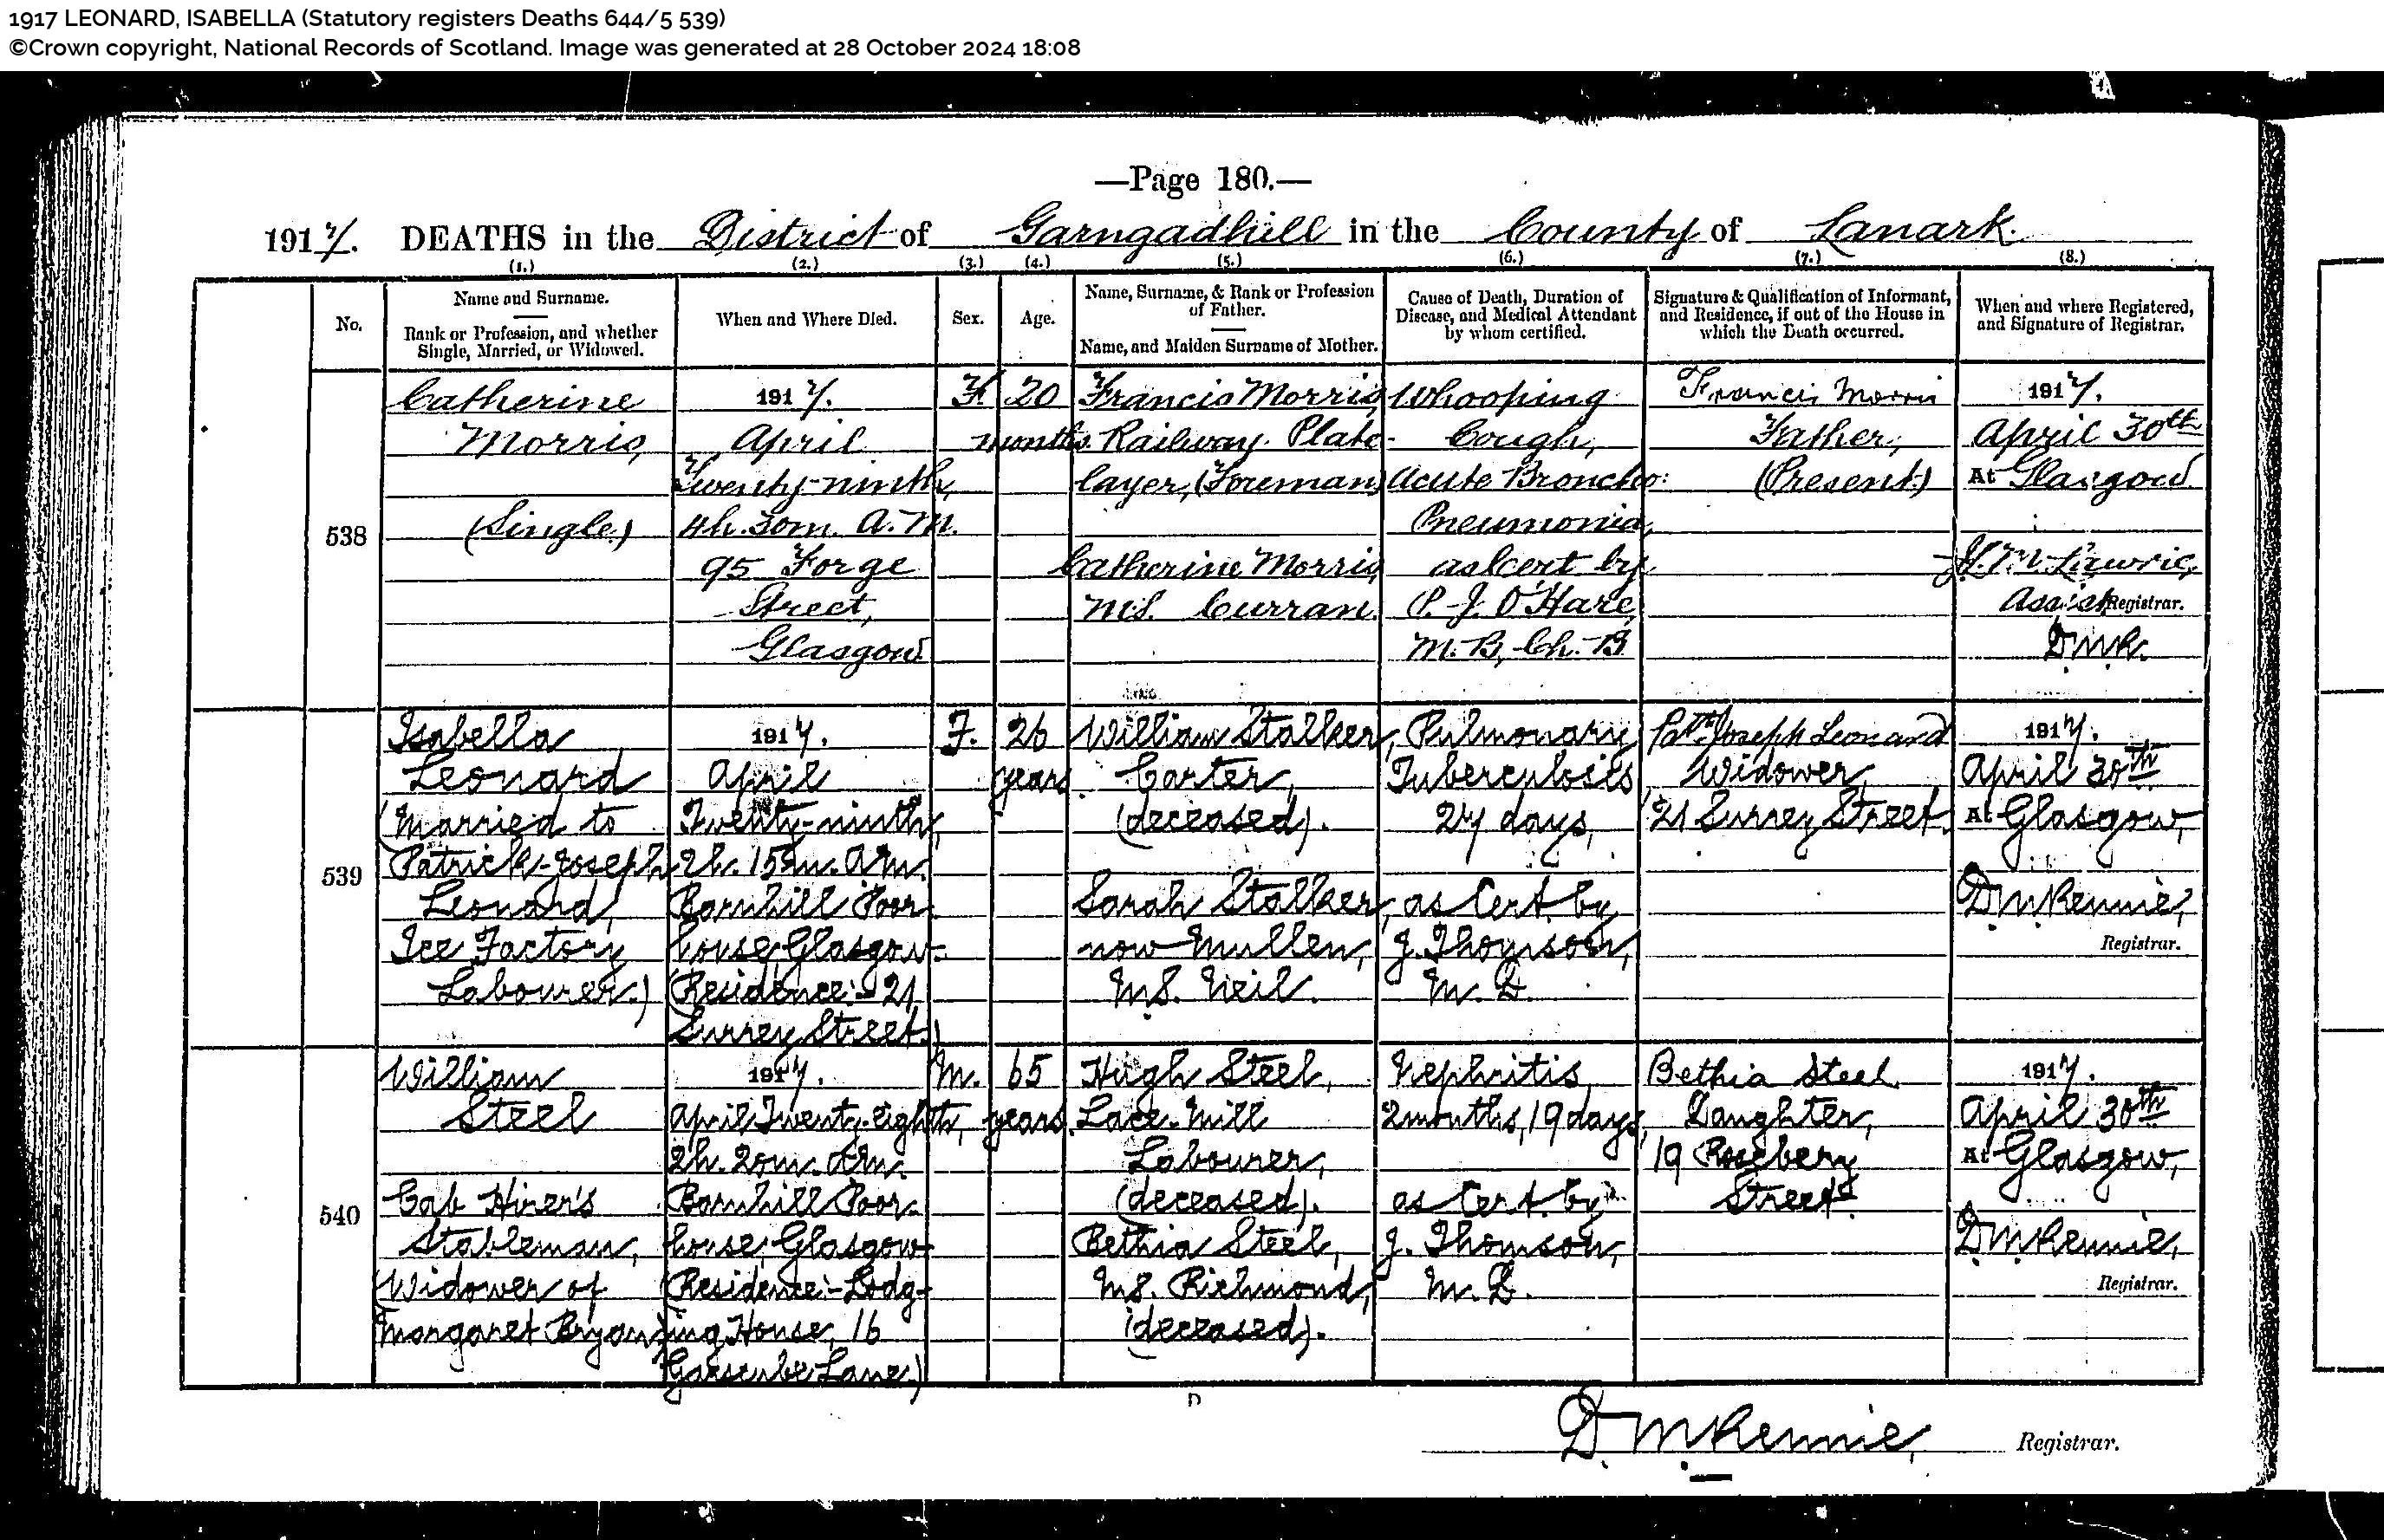 1917 LEONARD, ISABELLA (Statutory registers Deaths 644/5 539)
©Crown copyright, National Records of Scotland. Image was generated at 28 October 2024 18:08
—Page 180.—
1917. DEATHS in the District of Garngadhill in the County of Lanark.
(1.) (2.) (3.) (4.) (5.) (6.) (7.) (8.)
No.
Name and Surname.
Rank or Profession, and whether
Single, Married, or Widowed.
When and Where Died.
Sex.
Age.
Name, Surname, & Rank or Profession
of Father.
Name, and Maiden Surname of Mother.
Cause of Death, Duration of
Disease, and Medical Attendant
by whom certified.
Signature & Qualification of Informant,
and Residence, if out of the House in
which the Death occurred.
When and where Registered,
and Signature of Registrar.
538
Catherine
Morris,
(Single)
1917.
April
Twenty-ninth,
4h. 30m. A.M.
95 Forge
Street,
Glasgow.
F.
20
months.
Francis Morris,
Railway Plate-
layer, (Foreman)
Catherine Morris,
M.S. Curran.
Whooping
Cough,
Acute Broncho:
Pneumonia,
as Cert. by
P. J. O'Hare,
M.B., Ch.B.
Francis Morris
Father,
(Present.)
1917.
April 30th
At Glasgow.
Lawrie,
Assist. Registrar.
D. McK.
539
Isabella
Leonard
(Married to
Patrick-Joseph
Leonard,
Ice Factory
Labourer.)
1917.
April
Twenty-ninth,
2h. 15m. A.M.
Barnhill Poor-
house, Glasgow.
(Residence:- 21
Surrey Street.)
F.
26
years.
William Stalker,
Carter,
(deceased).
Sarah Stalker,
now Mullen,
M.S. Neil.
Pulmonary
Tuberculosis
27 days,
as Cert. by
J. Thomson,
M.D.
Patk. Joseph Leonard
Widower,
21 Surrey Street.
1917.
April 30th
At Glasgow,
D McKennie,
Registrar.
540
William
Steel
Cab Hirer's
Stableman,
(Widower of
Margaret Bryan)
1917.
April Twenty-eighth,
2h. 20m. A.M.
Barnhill Poor-
house, Glasgow
(Residence:- Lodg-
ing House, 16
Garscube Lane)
M.
65
years.
Hugh Steel,
Lace-Mill
Labourer,
(deceased).
Bethia Steel,
M.S. Richmond,
(deceased).
Nephritis,
2 months, 19 days,
as Cert. by
J. Thomson,
M.D.
Bethia Steel
Daughter,
19 Rosebery
Street.
1917.
April 30th
At Glasgow,
D McKennie,
Registrar.
D McKennie,
Registrar.